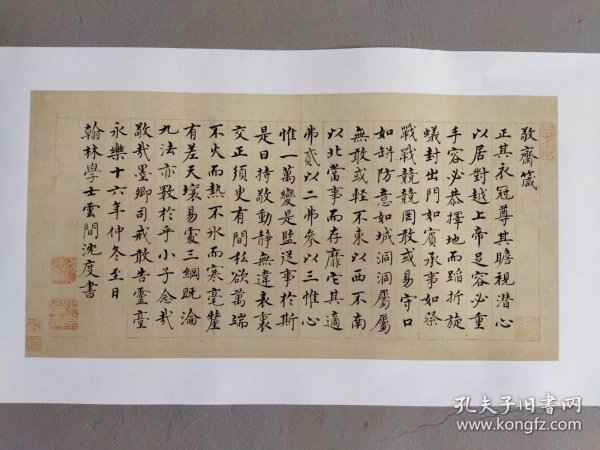 敬齋箴
正其衣冠尊其瞻視潛心
以居對越上帝足容必重
手容必恭擇地而蹈折旋
蟻封出門如賓承事如祭
戰戰兢兢罔敢或易守口
如缾防意如城洞洞屬屬
無敢或輕不東以西不南
以北當事而存靡它其適
弗貳以二弗參以三惟心
惟一萬變是監從事於斯
是曰持敬動靜無違表裏
交正須臾有間私欲萬端
不火而熱不氷而寒毫釐
有差天壤易處三綱既淪
九法亦斁於乎小子念哉
敬哉墨卿司戒敢告靈臺
永樂十六年仲冬至日
翰林學士雲間沈度書
孔夫子旧书网
www.kongfz.com